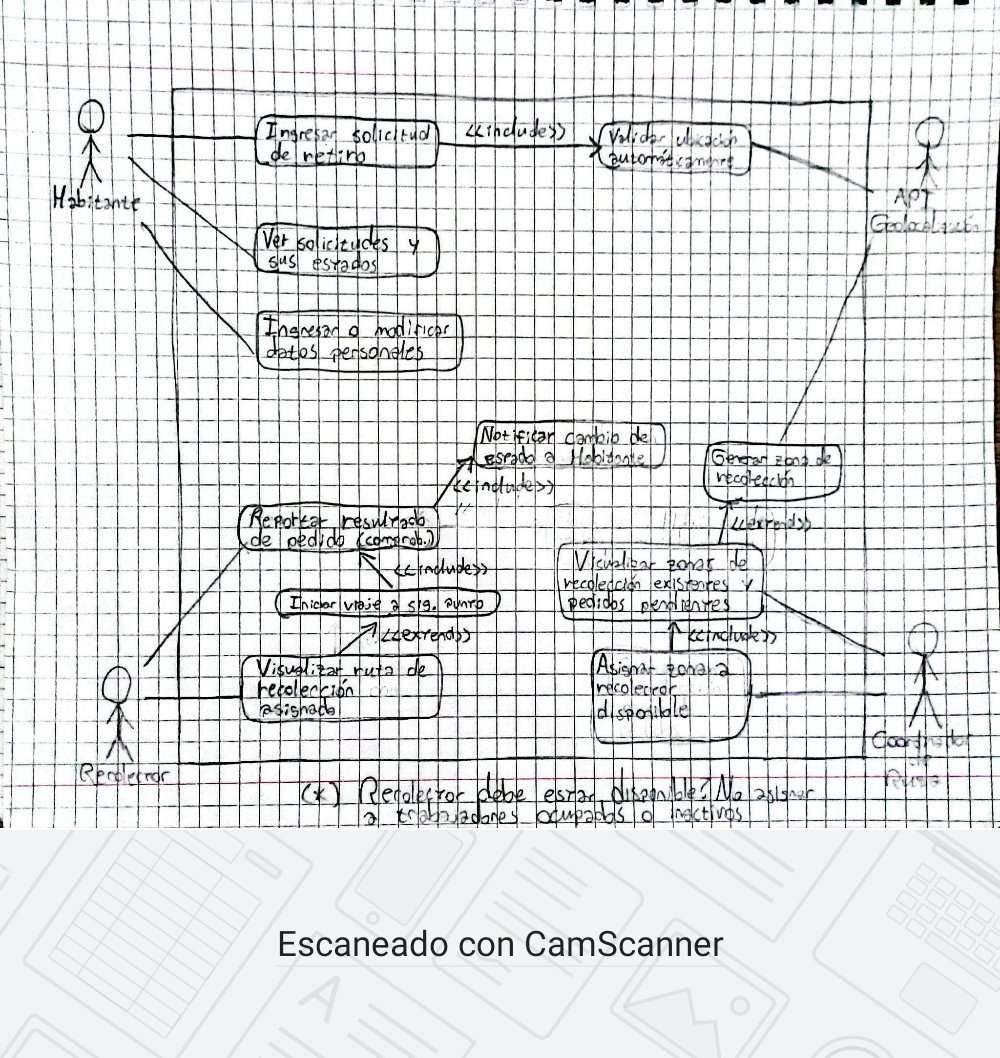 Ingresar solicitud
de retiro
<<include>>
Validar ubicación
automáticamente
Habitante
API
Geolocalización
Ver solicitudes y
sus estados
Ingresar o modificar
datos personales
Notificar cambio de
estado a Habitante
<<include>>
Generar zona de
recolección
Reportar resultado
de pedido (comprob.)
<<extend>>
<<include>>
Visualizar zonas de
recolección existentes y
pedidos pendientes
Iniciar viaje a sig. punto
<<extend>>
<<include>>
Visualizar ruta de
recolección
asignada
Asignar zona a
recolector
disponible
Recolector
Coordinador
de
Ruta
(*) Recolector debe estar disponible? No asignar
a trabajadores ocupados o inactivos
Escaneado con CamScanner